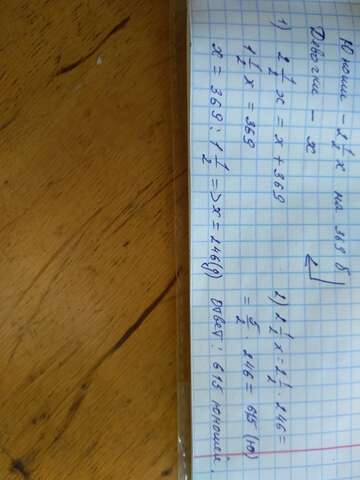 Юноши – 2 1/2 x на 369 б
Девочки – x
1) 2 1/2 x = x + 369
1 1/2 x = 369
x = 369 : 1 1/2 => x = 246(д)
2) 2 1/2 x = 2 1/2 · 246 =
= 5/2 · 246 = 615 (ю)
Ответ: 615 юношей.